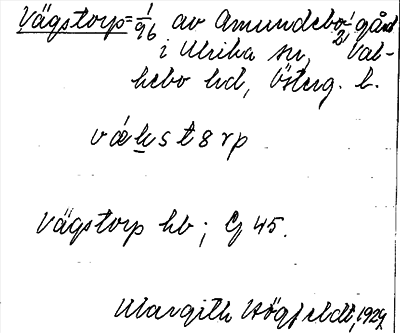 Vägstorp = 1/96 av Amundebo 1/2 gård
i Ulrika sn, Val-
kebo hd, Österg. l.
vǽkst8rp
Vägstorp hb; Cg 45.
Margith Högfeldt, 1929